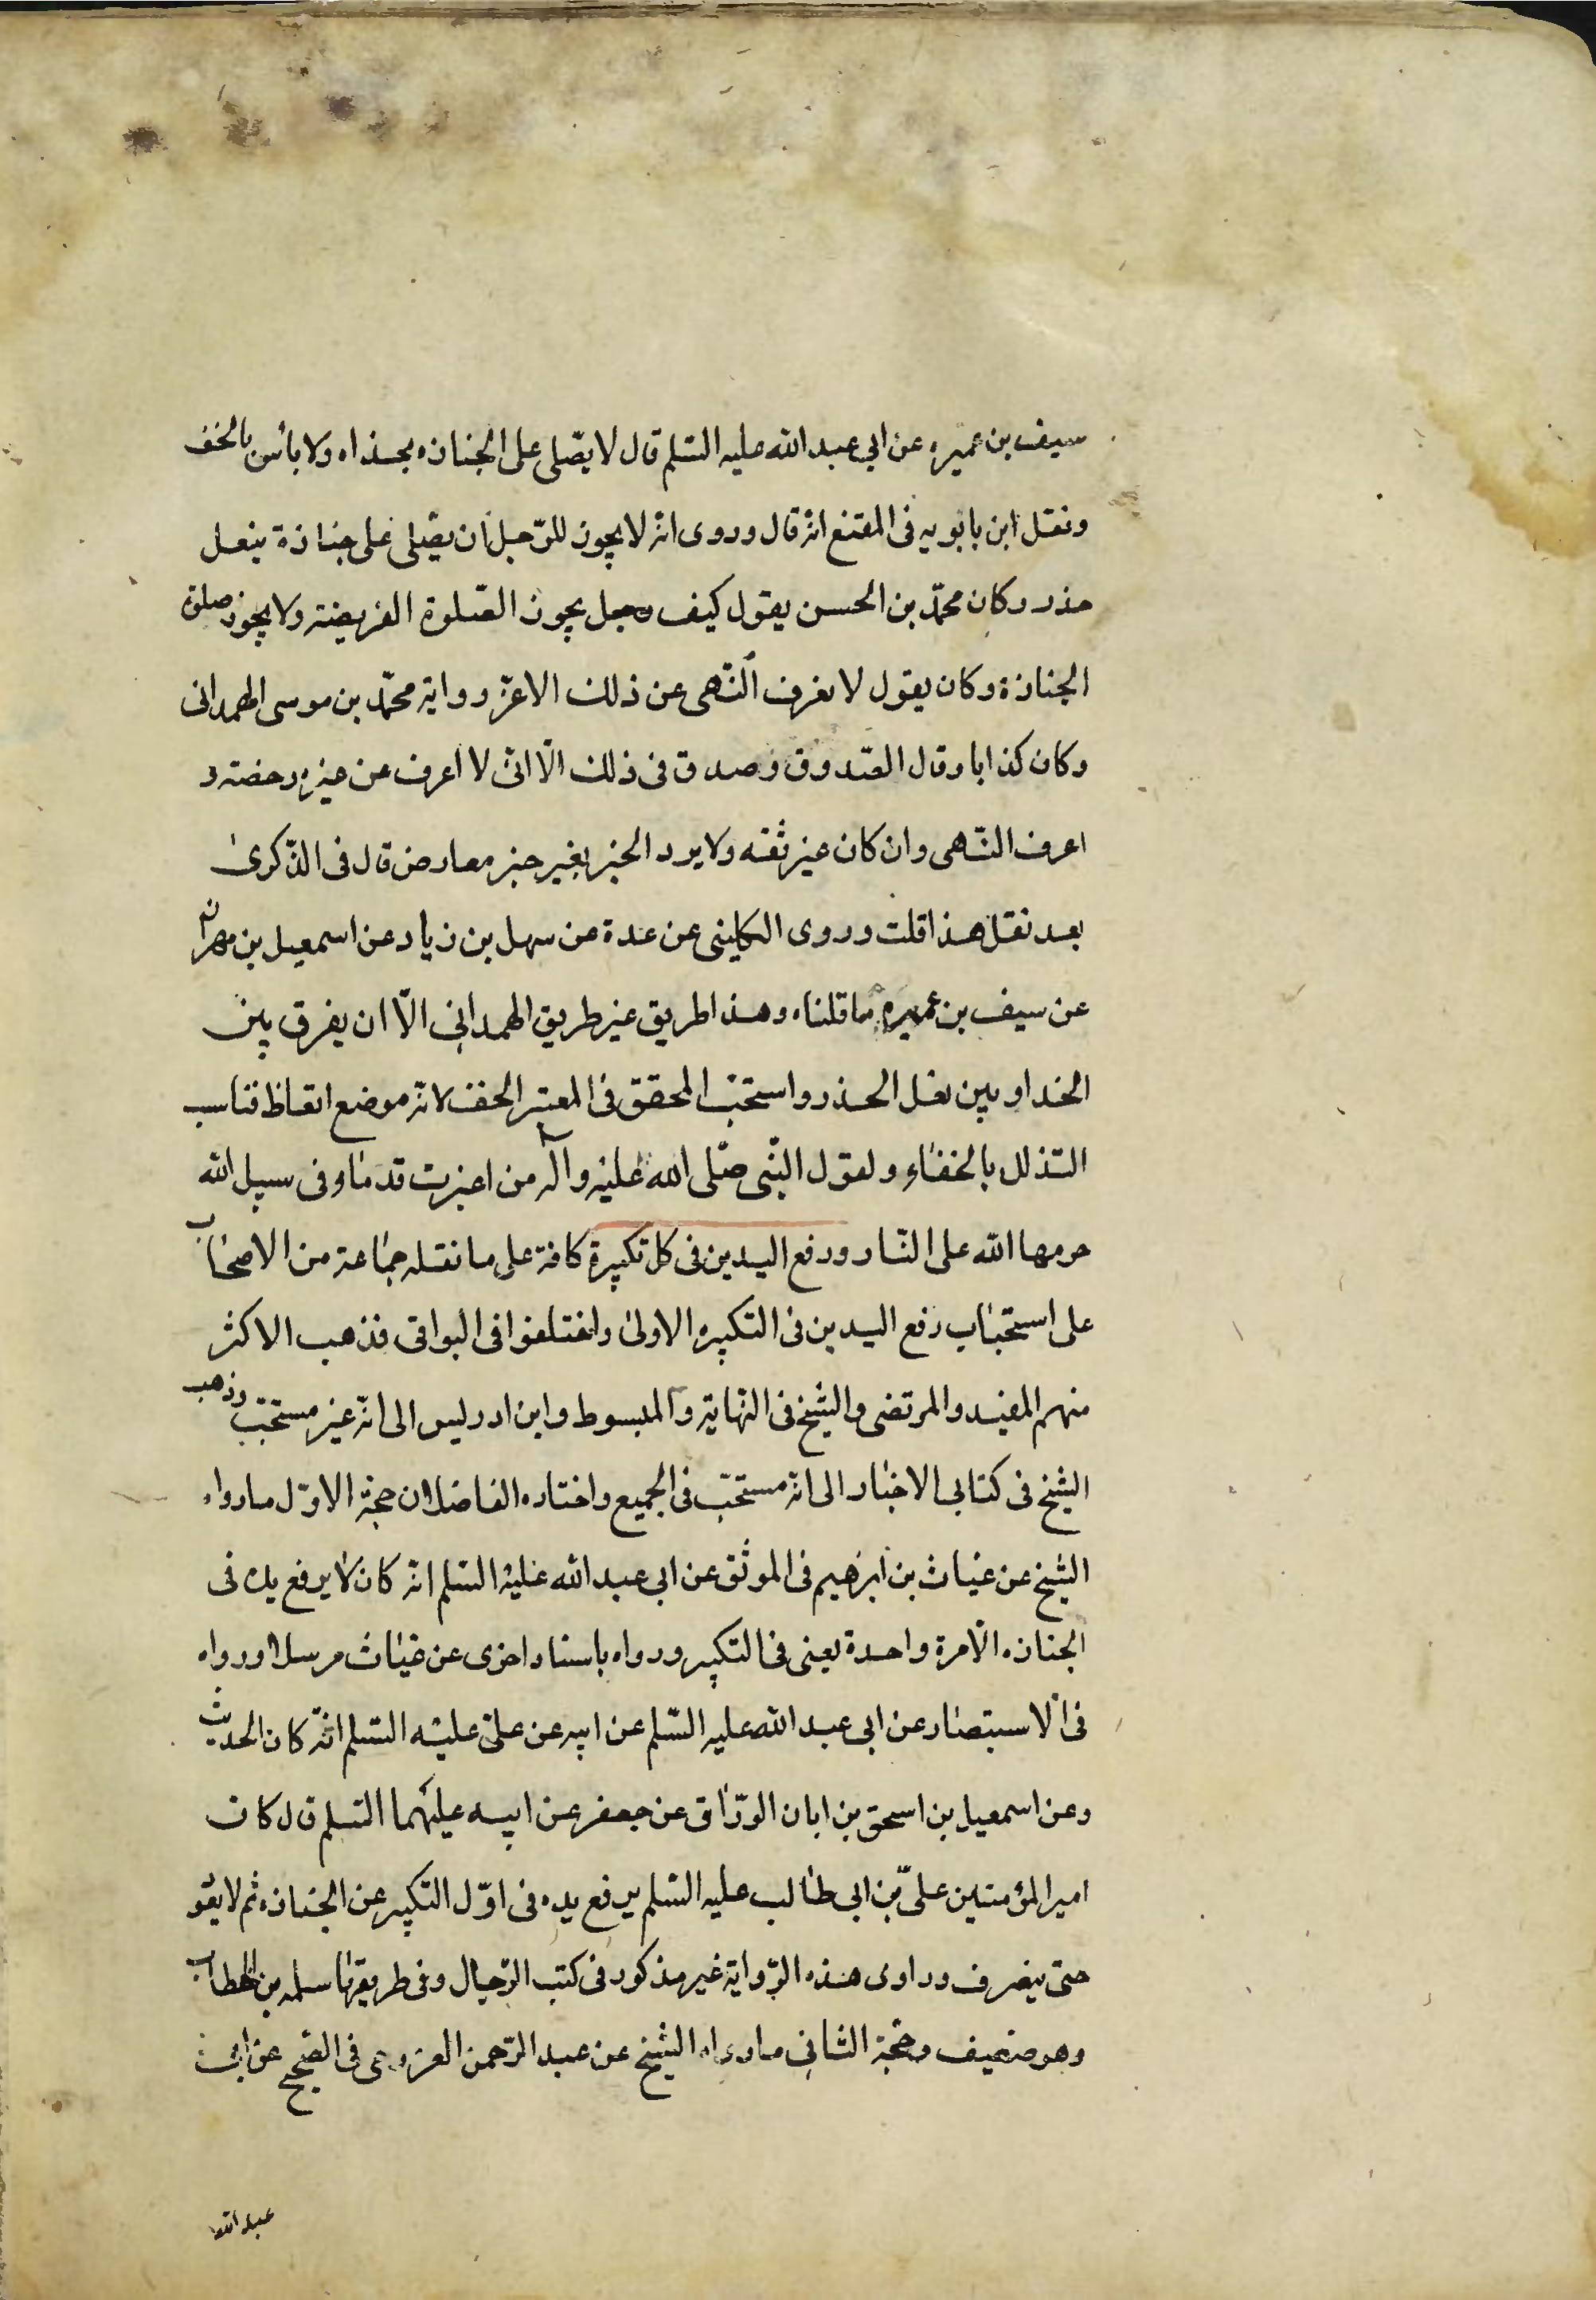 سيف بن عميره عن ابي عبد الله عليه السّلم قال لا يصّلى على الجنازه بحذاه ولا باس بالخف
ونقل ابن بابويه فى المقنع انه قال وروى انه لا يجوز للرّجل ان يصّلى على جنازة بنعل
حذر وكان محمّد بن الحسن يقول كيف رجل يجوز الصّلوة الفريضة ولا يجوز صلوة
الجنازة وكان يقول لا نعرف النّهى عن ذلك الا عن رواية محمّد بن موسى الهمدانى
وكان كذابا وقال الصّدوق وصدق فى ذلك الّا انى لا اعرف عن غيره رخصته و
اعرف النّهى وان كان غير ثقه ولا يرد الخبر بغير خبر معارض قال فى الذّكرى
بعد نقل هذا قلت وروى الكلينى عن عدة عن سهل بن زياد عن اسمعيل بن مهران
عن سيف بن عميره ما قلناه وهذا طريق غير طريق الهمدانى الّا ان يفرق بين
الخدا وبين نعل الحذر واستحبّ المحقق فى المعتبر الحف لانه موضع اتعاظ فناسب
التذلل بالحفاء ولقول النّبى صّلى الله عليه وآله من اغبرت قدماه فى سبيل الله
حرمها الله على النّار ورفع اليدين فى كل تكبيرة كافة على ما نقله جماعة من الاصحاب
على استحباب رفع اليدين فى التكبيره الاولى واختلفوا فى البواقى فذهب الاكثر
منهم المفيد والمرتضى والشيخ فى النّهاية والمبسوط وابن ادريس الى انّه غير مستحبّ وذهب
الشيخ فى كتابى الاخبار الى انّه مستحبّ فى الجميع واختاره الفاضلان حجة الاوّل ما رواه
الشيخ عن غياث بن ابرهيم فى الموثق عن ابى عبد الله عليه السّلم انّه كان لا يرفع يده فى
الجنازه الّا مرة واحدة يعنى فى التكبير ورواه باسناد اخرى عن غياث مرسلا ورواه
فى الاستبصار عن ابى عبد الله عليه السّلم عن ابيه عن علىّ عليه السّلم انّه كان الحديث
وعن اسمعيل بن اسحق بن ابان الورّاق عن جعفر عن ابيه عليهما السّلم قال كان
امير المؤمنين علىّ بن ابى طالب عليه السّلم يرفع يده فى اوّل التكبير عن الجنازه ثم لا يعو
حتى ينصرف وراوى هذه الرّواية غير مذكور فى كتب الرّجال وفى طريقها سلمه بن الخطاب
وهو ضعيف وحجّة الثانى ما رواه الشيخ عن عبد الرّحمن العزرمى فى الصّحيح عن ابى
عبد الله